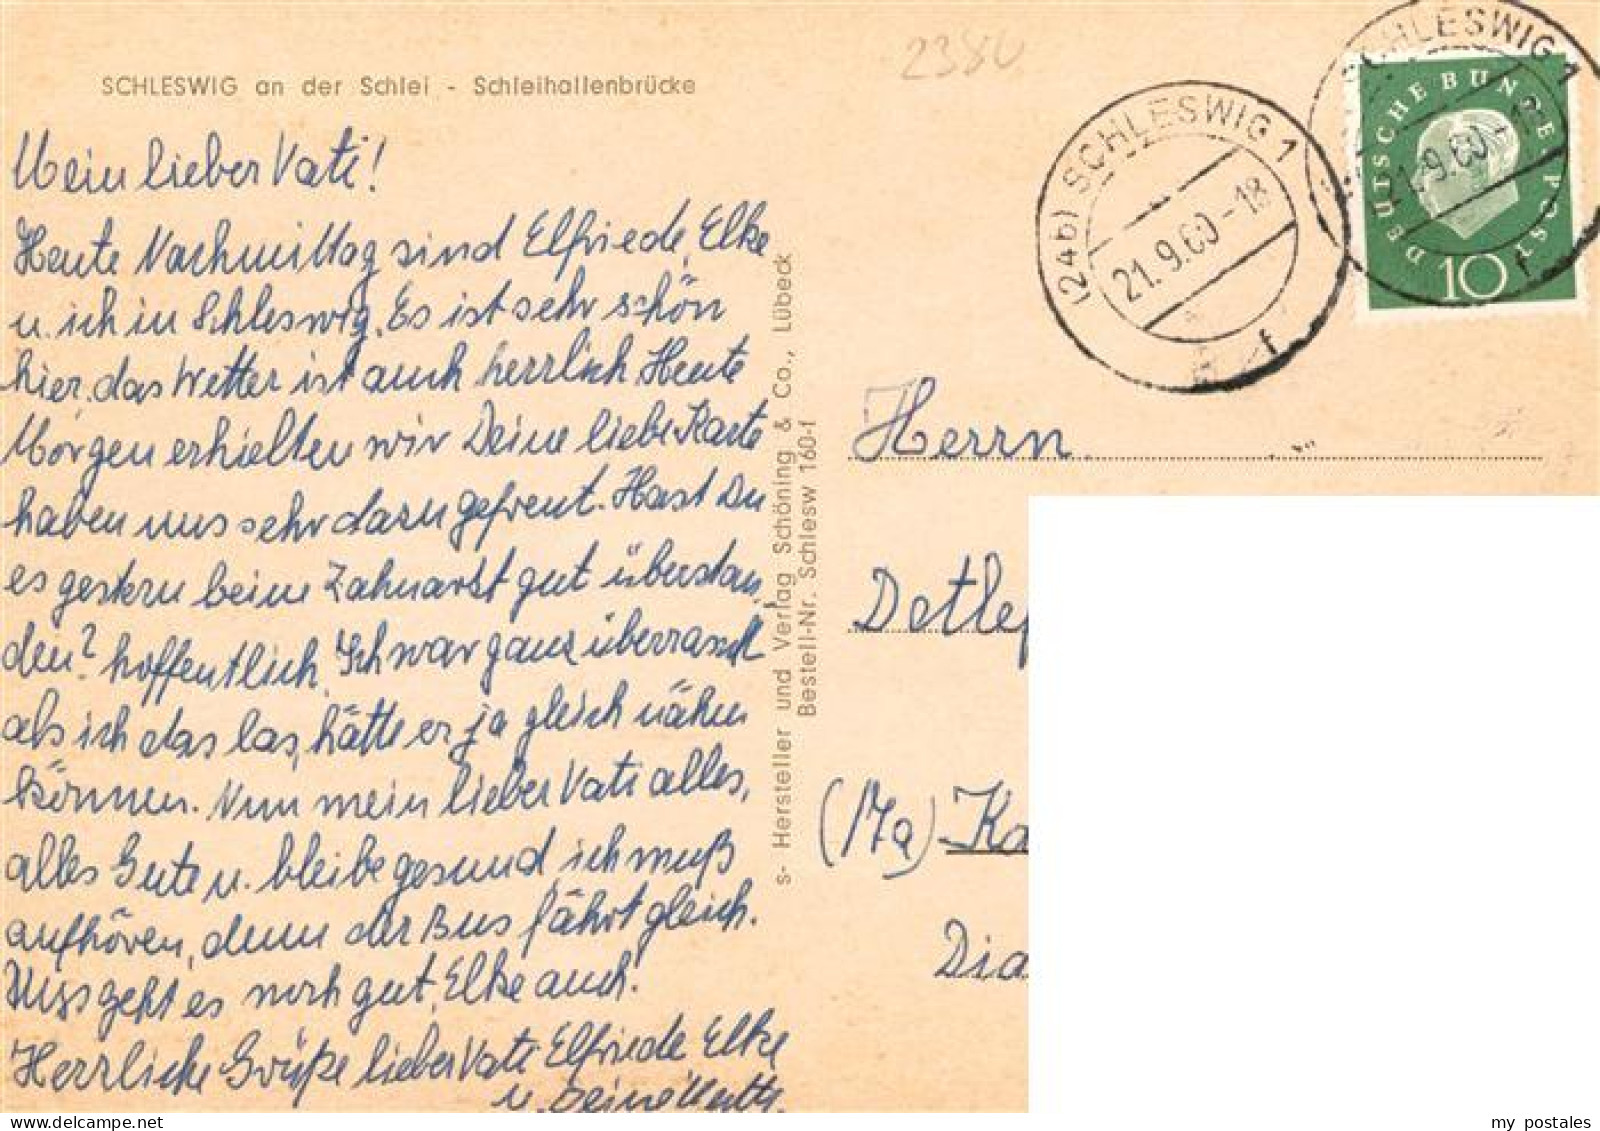 2380
SCHLESWIG an der Schlei - Schleihallenbrücke
Mein lieber Vati!
Heute Nachmittag sind Elfriede, Elke
u. ich in Schleswig. Es ist sehr schön
hier, das Wetter ist auch herrlich. Heute
Morgen erhielten wir Deine liebe Karte
haben uns sehr dazu gefreut. Hast Du
es gestern beim Zahnarzt gut überstan-
den? hoffentlich. Ich war ganz überrascht
als ich das las, hätte er ja gleich nähen
können. Nun mein lieber Vati alles,
alles Gute u. bleibe gesund, ich muß
aufhören, denn der Bus fährt gleich.
Uns geht es noch gut, Elke auch.
Herzliche Grüße lieber Vati Elfriede Elke
u. Deine Mutti.
s- Hersteller und Verlag Schöning & Co., Lübeck
Bestell-Nr. Schlesw 160-f
(24b) SCHLESWIG 1
21.9.60-18
f
SCHLESWIG 1
21.9.60-18
f
DEUTSCHE BUNDESPOST
10
Herrn
Detlef
(17a) Ka
Dia
my postales